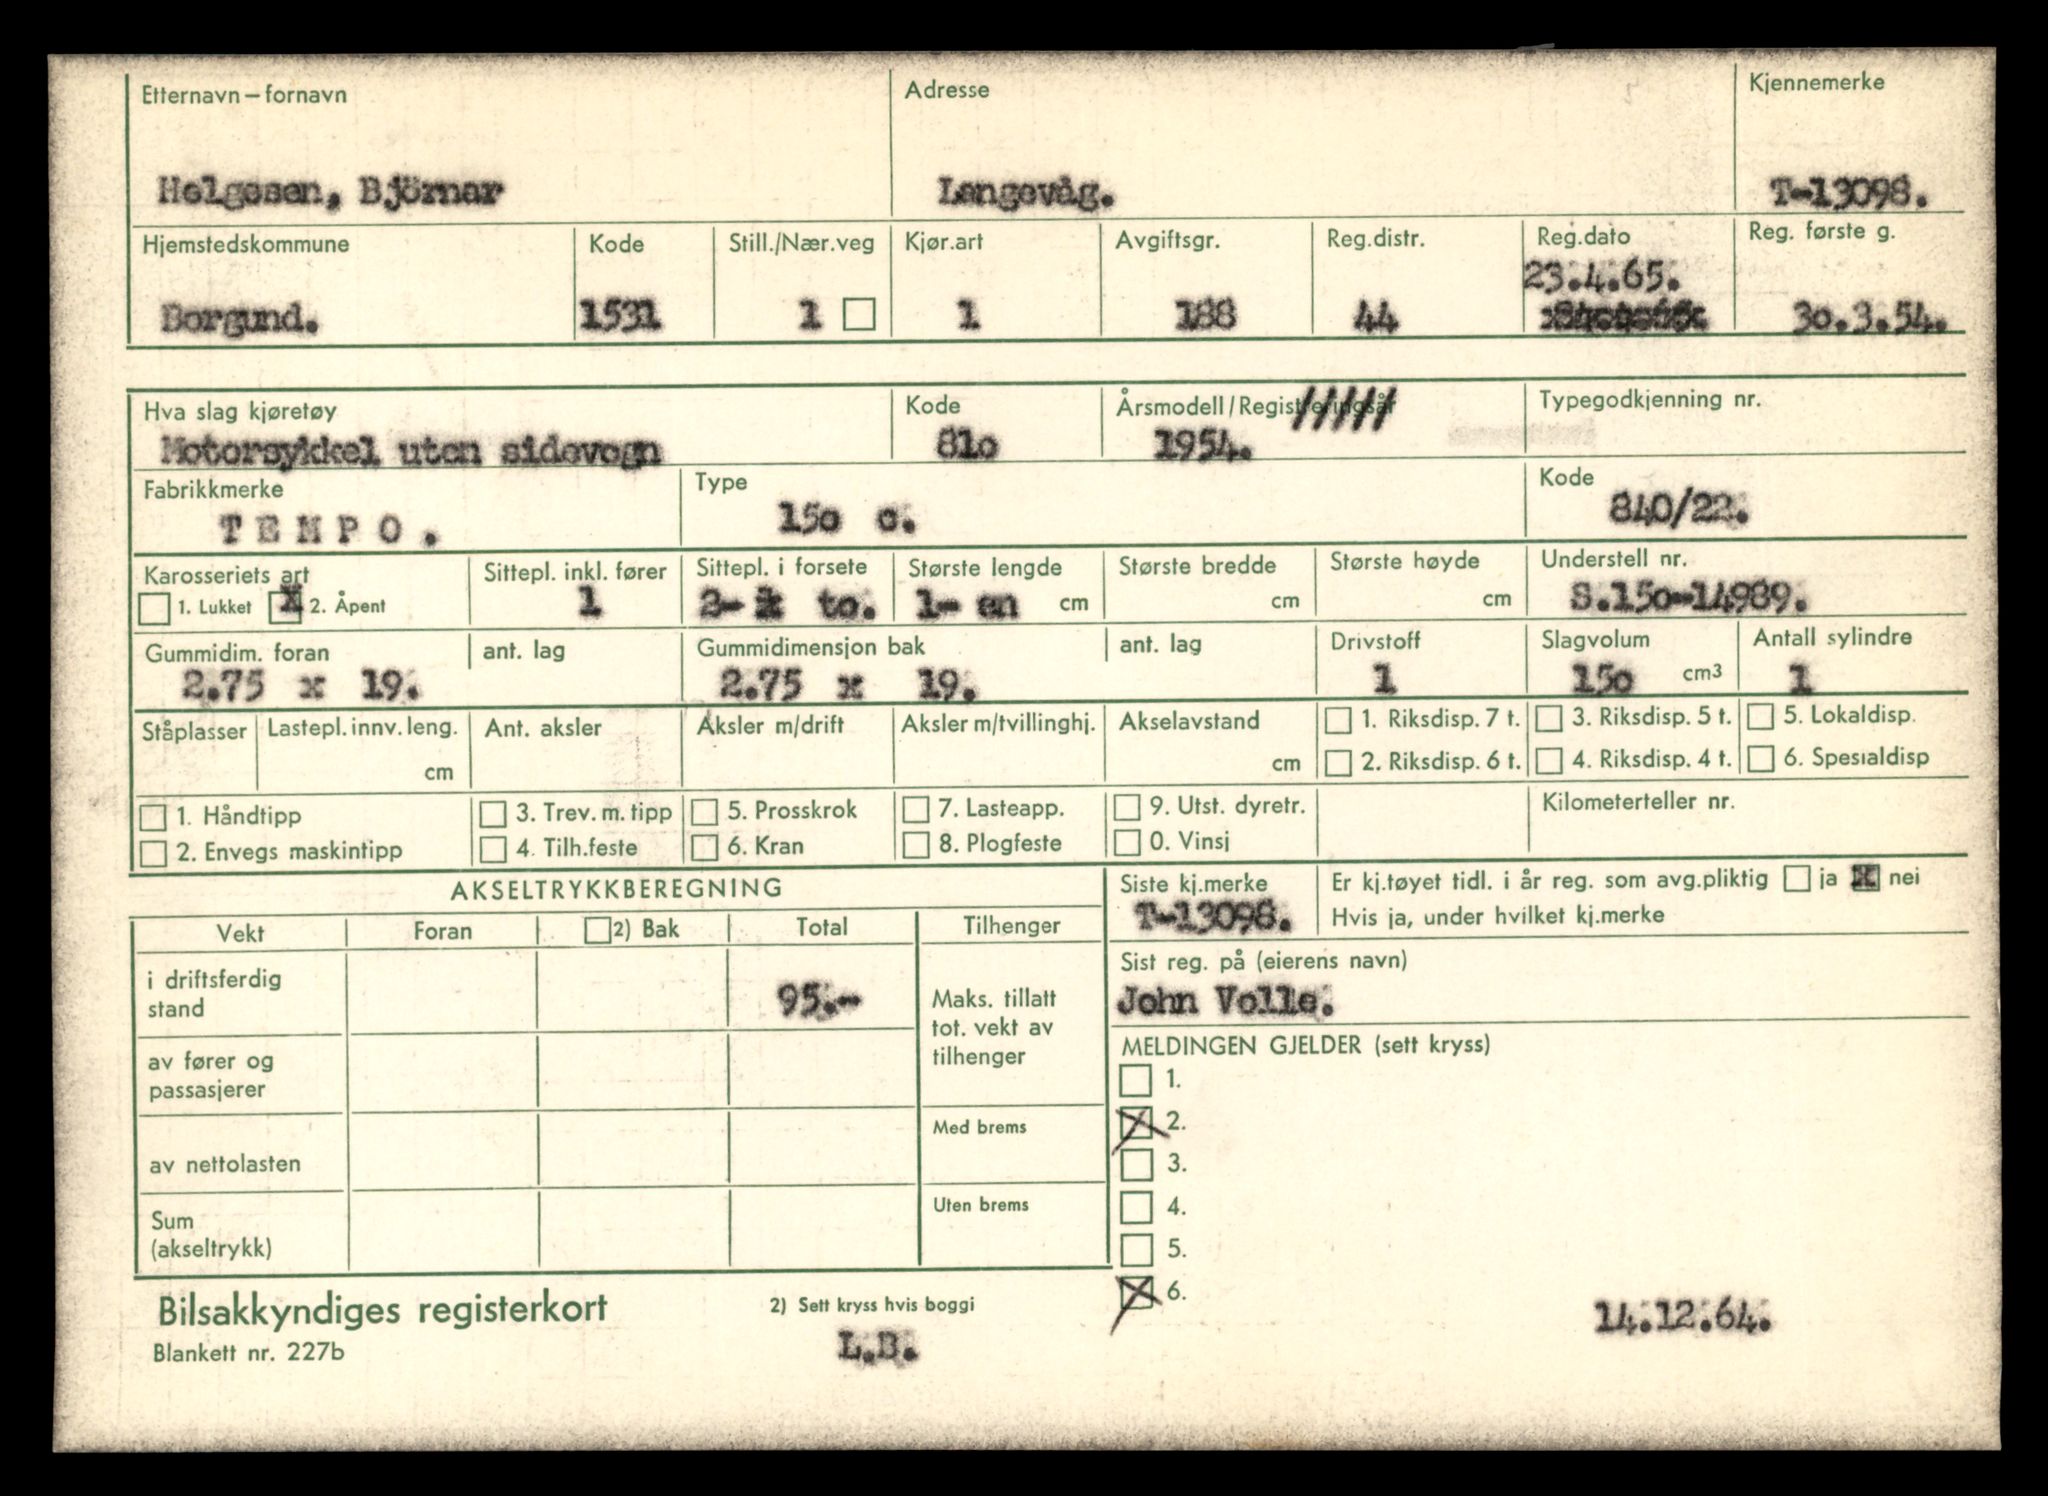 Etternavn – fornavn Adresse Kjennemerke
Helgesen, Björnar Langevåg. T-13098.
Hjemstedskommune Kode Still./Nær.veg Kjør.art Avgiftsgr. Reg.distr. Reg.dato Reg. første g.
23.4.65.
Borgund. 1531 1 1 188 44 3o.3.54.
Hva slag kjøretøy Kode Årsmodell/Registreringsår Typegodkjenning nr.
Motorsykkel uten sidevogn 81o 1954.
Fabrikkmerke Type Kode
TEMPO. 15o c. 840/22.
Karosseriets art Sittepl. inkl. fører Sittepl. i forsete Største lengde Største bredde Største høyde Understell nr.
1. Lukket X 2. Åpent 1 2- to. 1- en cm cm cm S.15o-14989.
Gummidim. foran ant. lag Gummidimensjon bak ant. lag Drivstoff Slagvolum Antall sylindre
2.75 x 19. 2.75 x 19. 1 15o cm3 1
Ståplasser Lastepl. innv. leng. Ant. aksler Aksler m/drift Aksler m/tvillinghj. Akselavstand 1. Riksdisp. 7 t. 3. Riksdisp. 5 t. 5. Lokaldisp.
cm cm 2. Riksdisp. 6 t. 4. Riksdisp. 4 t. 6. Spesialdisp
1. Håndtipp 3. Trev. m. tipp 5. Prosskrok 7. Lasteapp. 9. Utst. dyretr. Kilometerteller nr.
2. Envegs maskintipp 4. Tilh.feste 6. Kran 8. Plogfeste 0. Vinsj
AKSELTRYKKBEREGNING Siste kj.merke Er kj.tøyet tidl. i år reg. som avg.pliktig ja X nei
T-13098. Hvis ja, under hvilket kj.merke
Vekt Foran 2) Bak Total Tilhenger
Sist reg. på (eierens navn)
i driftsferdig stand 95.- Maks. tillatt tot. vekt av tilhenger
John Volle.
MELDINGEN GJELDER (sett kryss)
av fører og passasjerer
1.
Med brems X 2.
av nettolasten 3.
Uten brems 4.
Sum (akseltrykk) 5.
X 6.
Bilsakkyndiges registerkort 2) Sett kryss hvis boggi 14.12.64.
Blankett nr. 227b L.B.